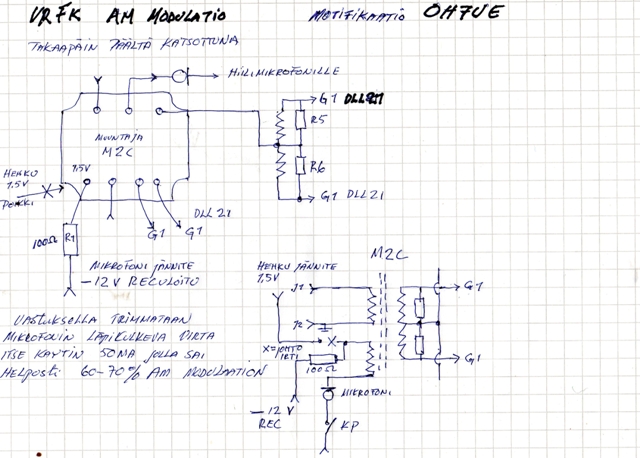 VRFK AM MODULATIO MOTIFIKAATIO OH7UE
TAKAAPÄIN PÄÄLTÄ KATSOTTUNA
HIILIMIKROFONILLE
G1 DLL21
R5
MUUNTAJA
M2C
R6
HEHKU
1,5V
POIKKI
1,5V
G1 DLL21
DLL21
G1 G1
100Ω R1
MIKROFONI JÄNNITE
-12V REGULOITU
M2C
HEHKU JÄNNITE
1,5V
G1
VASTUKSELLA TRIMMATAAN
MIKROFONIN LÄPIKULKEVA VIRTA
ITSE KÄYTIN 50MA JOLLA SAI
HELPOSTI 60-70% AM MODULAATION
X
X=JOHTO
IRTI
100Ω
G1
MIKROFONI
-12V
REG
KP